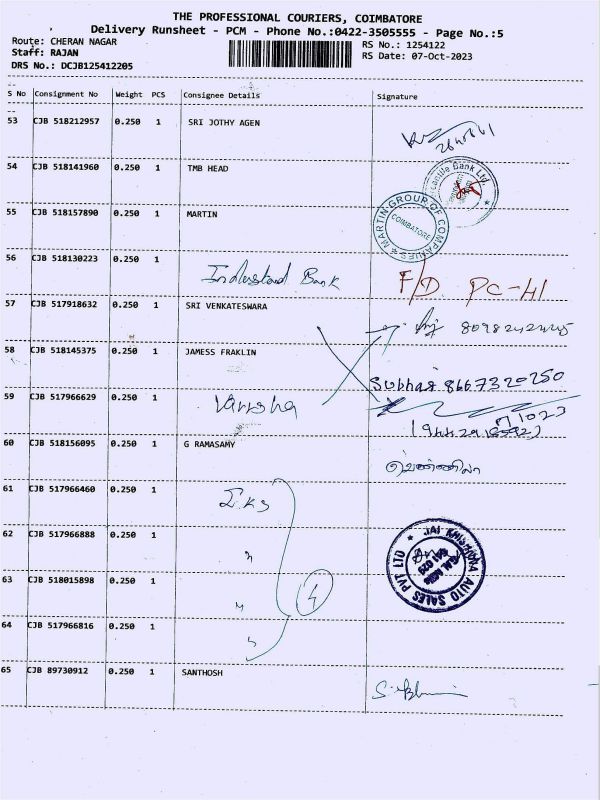 THE PROFESSIONAL COURIERS, COIMBATORE
Delivery Runsheet - PCM - Phone No.:0422-3505555 - Page No.:5
Route: CHERAN NAGAR
RS No.: 1254122
Staff: RAJAN
RS Date: 07-Oct-2023
DRS No.: DCJB125412205
S No Consignment No Weight PCS Consignee Details Signature
53 CJB 518212957 0.250 1 SRI JOTHY AGEN
54 CJB 518141960 0.250 1 TMB HEAD
55 CJB 518157890 0.250 1 MARTIN
MARTIN GROUP OF COMPANIES
COIMBATORE
56 CJB 518130223 0.250 1 Indusstand Bank F/D PC-41
57 CJB 517918632 0.250 1 SRI VENKATESWARA
58 CJB 518145375 0.250 1 JAMESS FRAKLIN
Subhas 8667320250
59 CJB 517966629 0.250 1 Varsha
60 CJB 518156095 0.250 1 G RAMASAMY
61 CJB 517966460 0.250 1
62 CJB 517966888 0.250 1 "
JAI KHISHNA AUTO SALES PVT LTD
63 CJB 518015898 0.250 1 "
4
64 CJB 517966816 0.250 1 "
65 CJB 89730912 0.250 1 SANTHOSH